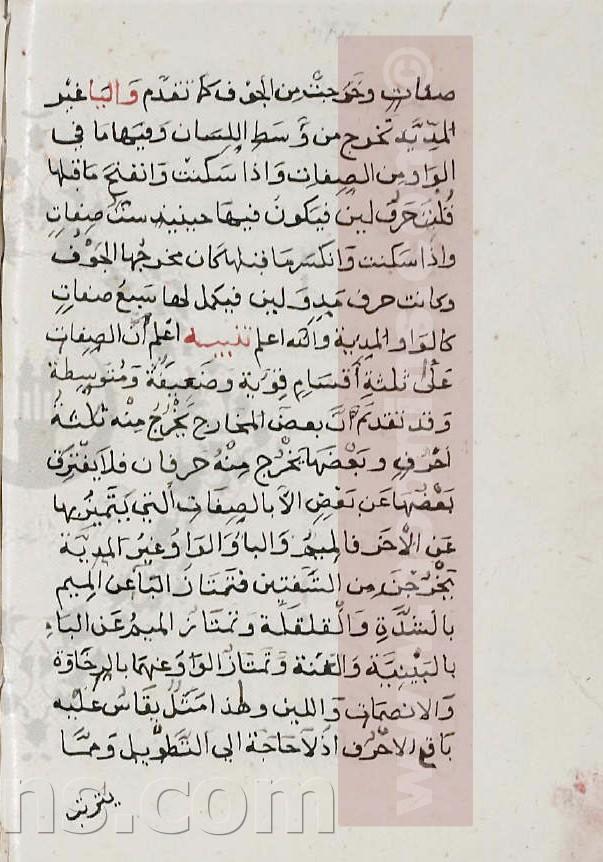 صفات وخرجت من الجوف كما تقدم واليا غير
المدّيّة تخرج من وسط اللسان وفيها ما في
الواو من الصفات واذا سكنت وانفتح ما قبلها
قلت حرف لين فيكون فيها حينيذ ست صفات
واذا سكنت وانكسر ما قبلها كان مخرجها الجوف
وكانت حرف مد ولين فيكمل لها سبع صفات
كالواو المدية والله اعلم تنبيه اعلم أنّ الصفات
على ثلثة أقسام قوية وضعيفة ومتوسطة
وقد تقدم أنّ بعض المخارج يخرج منه ثلثة
احرف وبعضها يخرج منه حرفان فلا يفترق
بعضها عن بعض الا بالصفات التي يتميز بها
عن الاخر فالميم والبا والواو غير المدية
يخرجن من الشفتين فتمتاز البا عن الميم
بالشدّة والقلقلة وتمتاز الميم عن الباء
بالبينيّة والغنة وتمتاز الواو عنهما بالرخاوة
والانصمات واللين وهذا مثل يقاس عليه
باقي الاحرف اذ لا حاجة الي التطويل ومما
ns.com
www.